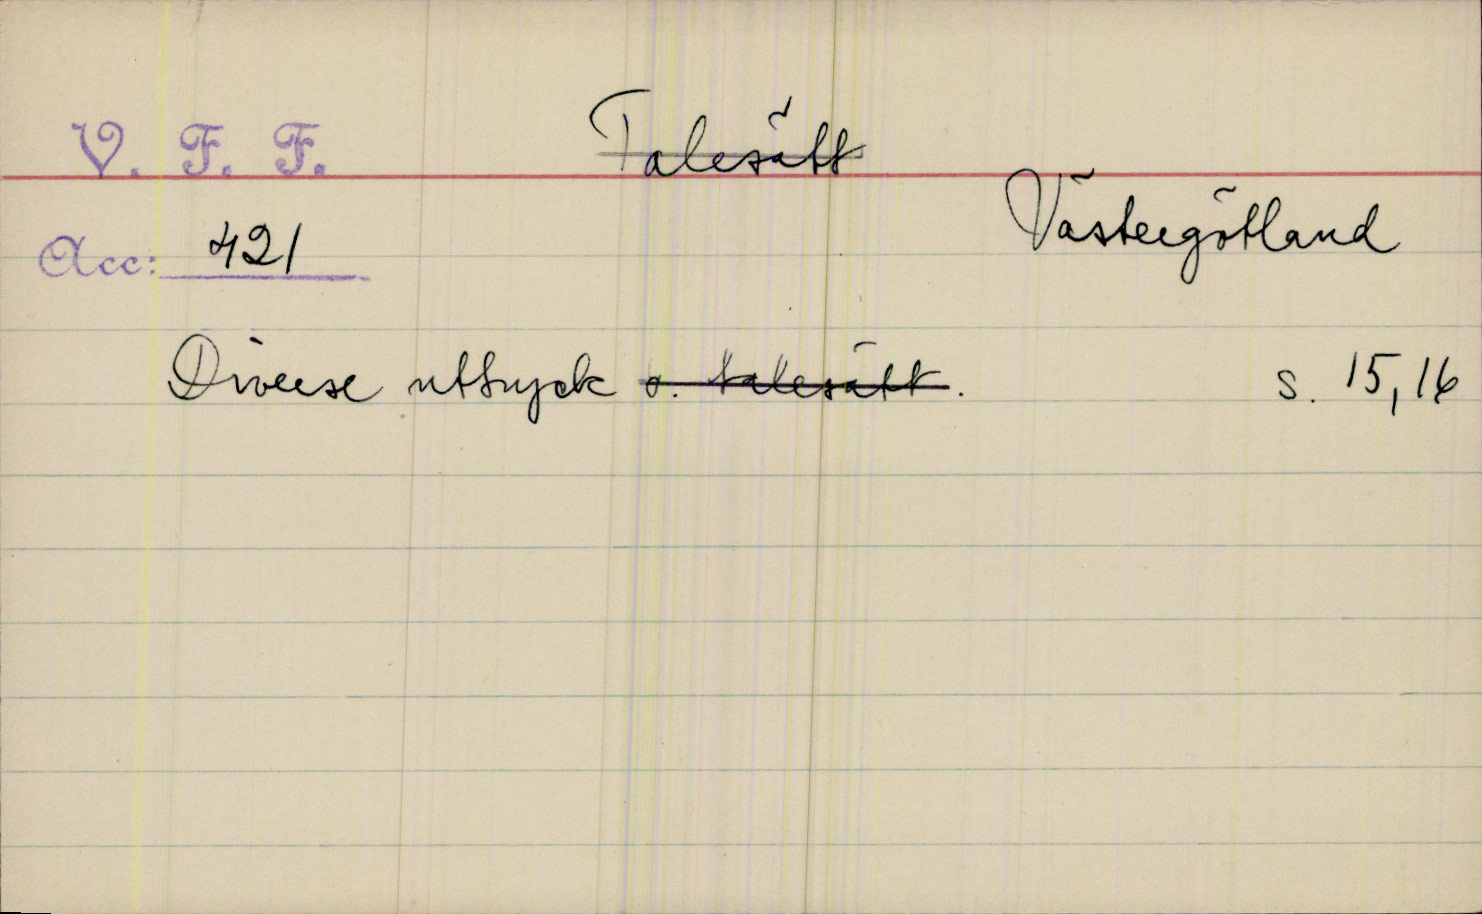 V. F. F. Talesätt
Västergötland
Acc: 421
Diverse uttryck o. talesätt. s. 15, 16